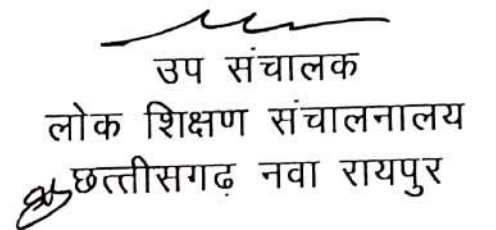 उप संचालक
लोक शिक्षण संचालनालय
छत्तीसगढ़ नवा रायपुर